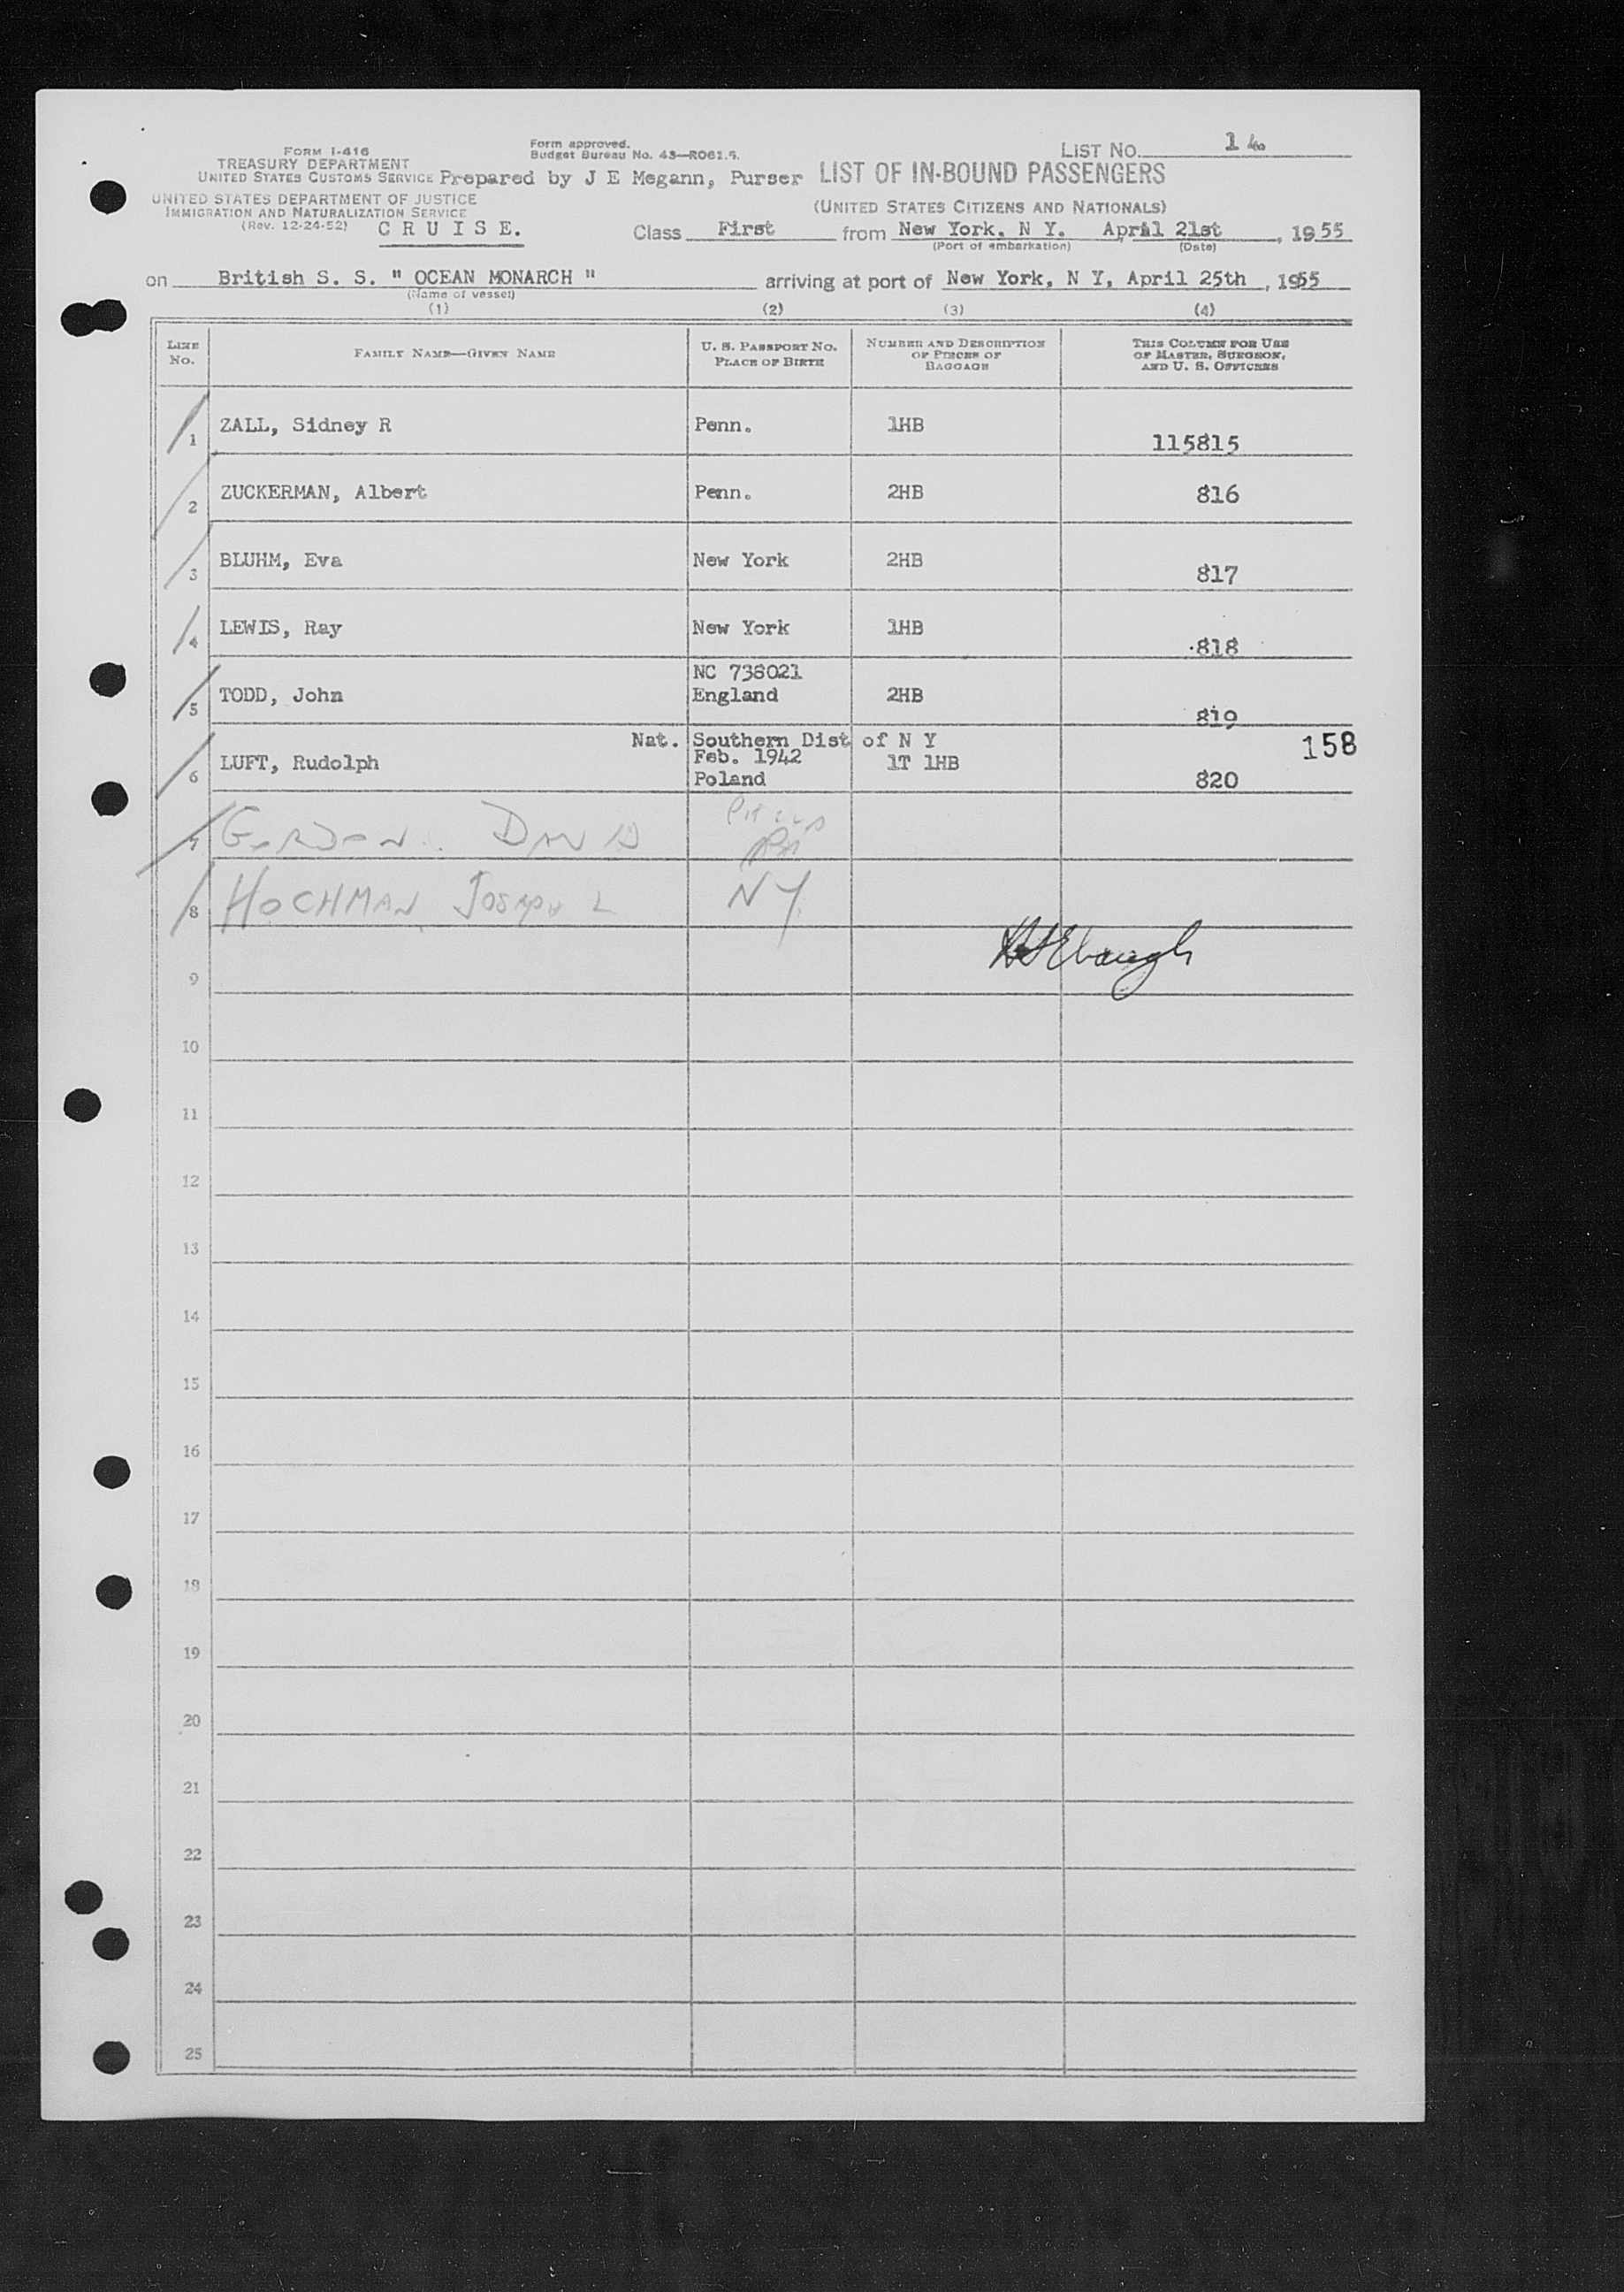 FORM I-416
TREASURY DEPARTMENT
UNITED STATES CUSTOMS SERVICE
UNITED STATES DEPARTMENT OF JUSTICE
IMMIGRATION AND NATURALIZATION SERVICE
(Rev. 12-24-52)
C R U I S E.
Form approved.
Budget Bureau No. 43—RO61.5.
Prepared by J E Megann, Purser
LIST NO. 14
LIST OF IN-BOUND PASSENGERS
(UNITED STATES CITIZENS AND NATIONALS)
Class First from New York, N Y. April 21st, 1955
(Port of embarkation) (Date)
on British S. S. " OCEAN MONARCH " arriving at port of New York, N Y, April 25th, 1955
(Name of vessel)
(1) (2) (3) (4)
LINE NO. FAMILY NAME—GIVEN NAME U. S. PASSPORT NO. PLACE OF BIRTH NUMBER AND DESCRIPTION OF PIECES OF BAGGAGE THIS COLUMN FOR USE OF MASTER, SURGEON, AND U. S. OFFICERS
1 ZALL, Sidney R Penn. 1HB 115815
2 ZUCKERMAN, Albert Penn. 2HB 816
3 BLUHM, Eva New York 2HB 817
4 LEWIS, Ray New York 1HB 818
NC 738021
5 TODD, John England 2HB 819
Nat. Southern Dist of N Y 158
Feb. 1942
6 LUFT, Rudolph 1T 1HB
Poland 820
PHILA
7 GORDON. DAVID PA
8 HOCHMAN JOSEPH L NY
9
10
11
12
13
14
15
16
17
18
19
20
21
22
23
24
25